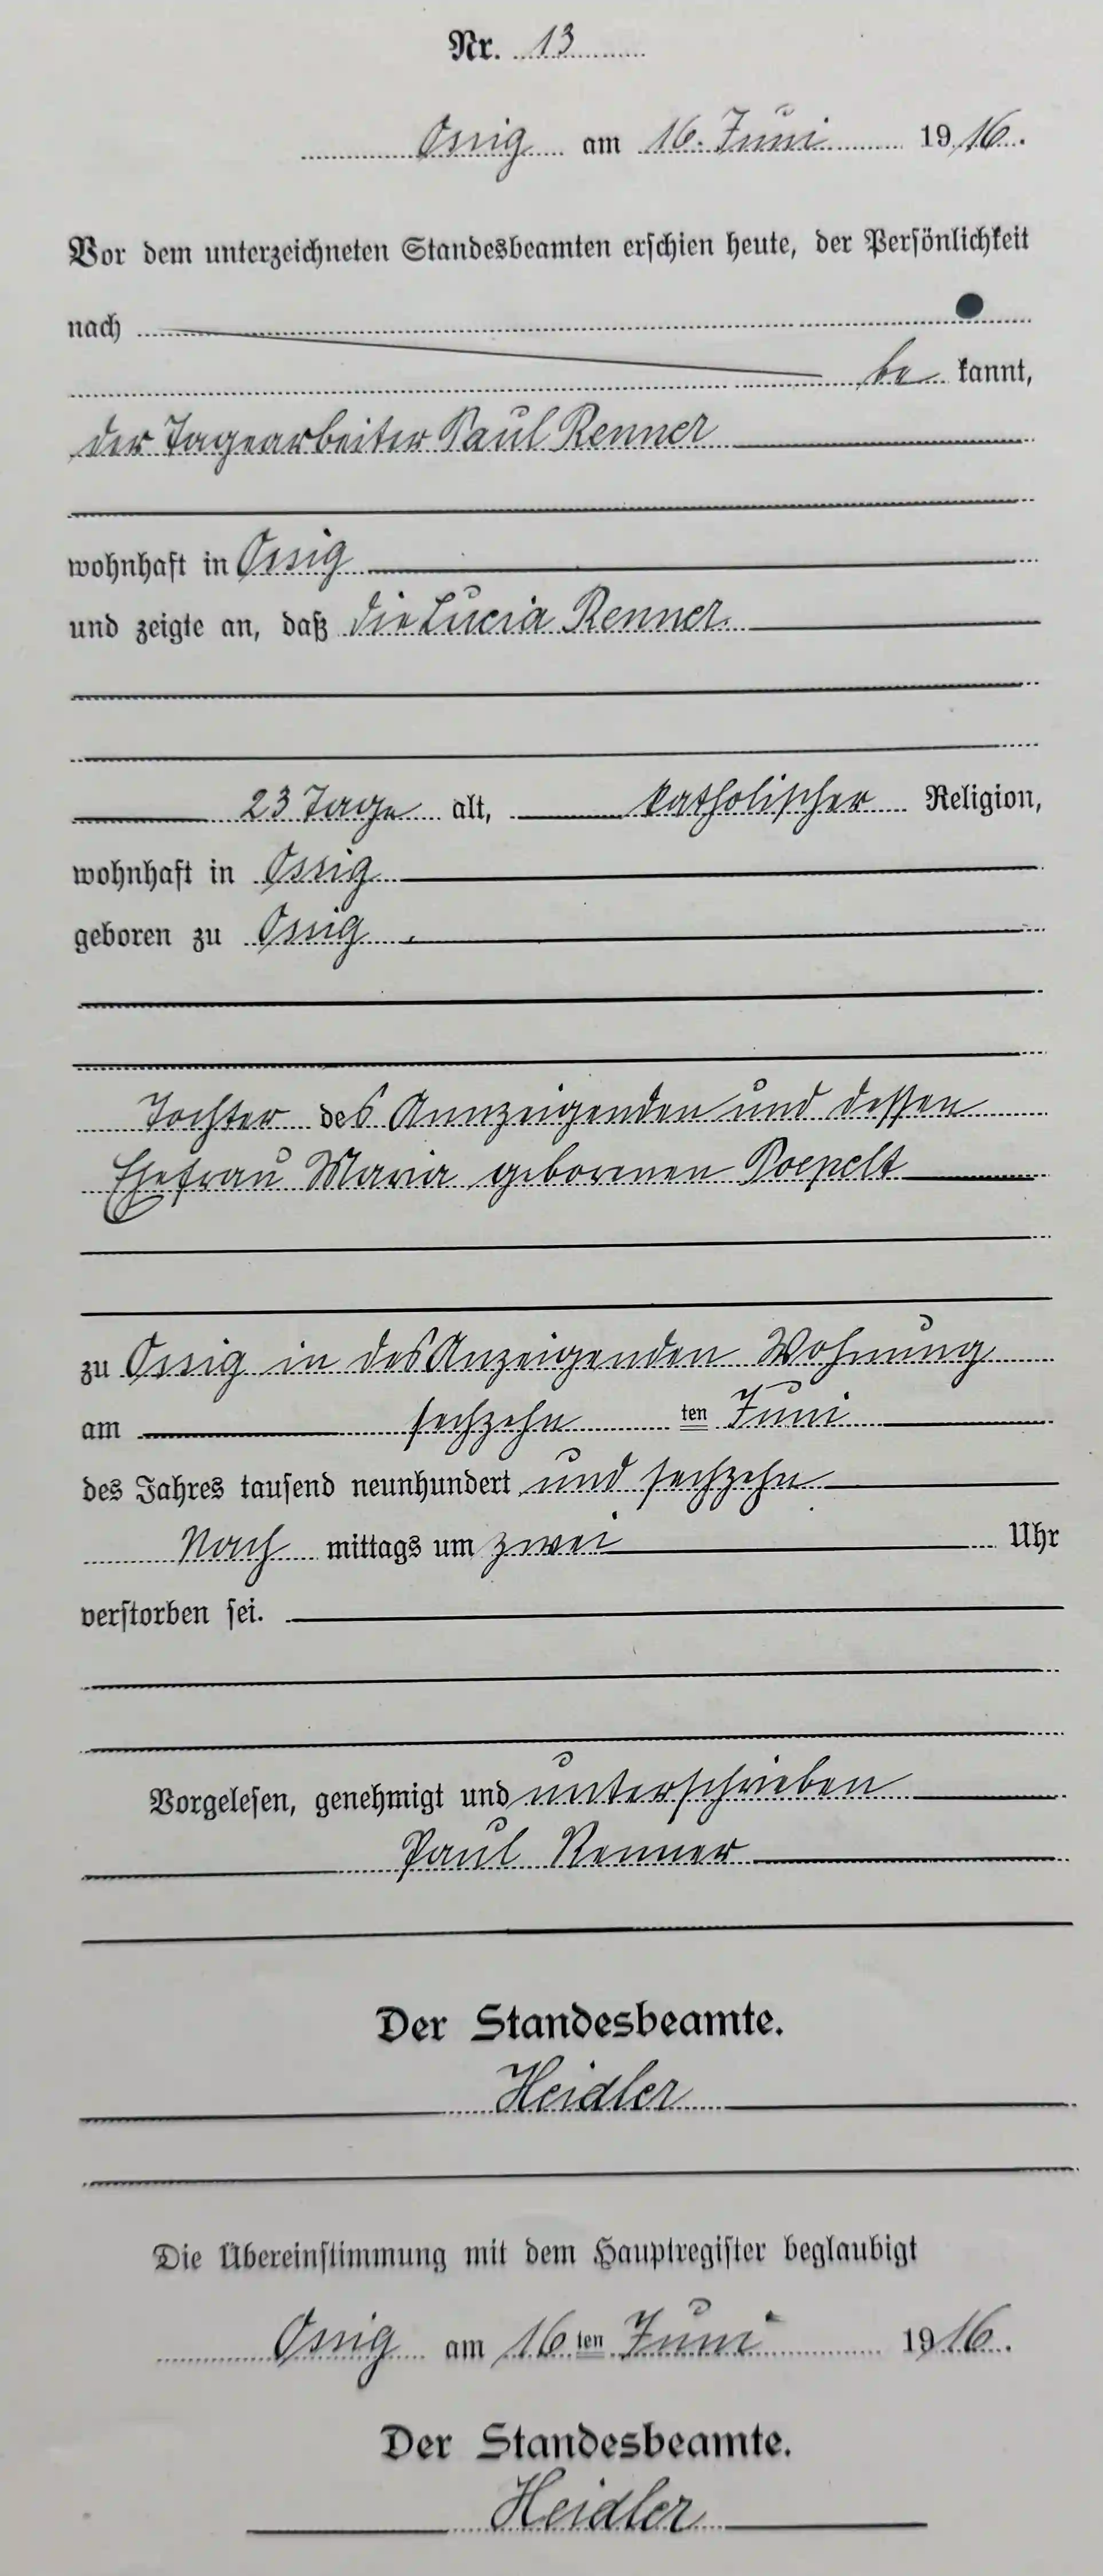 Nr. 13
Ossig am 16. Juni 1916.
Vor dem unterzeichneten Standesbeamten erschien heute, der Persönlichkeit
nach
be kannt,
der Tagearbeiter Paul Renner
wohnhaft in Ossig
und zeigte an, daß die Lucia Renner
23 Tage alt, katholischer Religion,
wohnhaft in Ossig
geboren zu Ossig
Tochter des Annzeigenden und dessen
Ehefrau Maria gebornen Poepelt
zu Ossig in des Anzeigenden Wohnung
am sechzehn ten Juni
des Jahres tausend neunhundert und sechzehn
Nach mittags um zwei Uhr
verstorben sei.
Vorgelesen, genehmigt und unterschrieben
Paul Renner
Der Standesbeamte.
Heidler
Die Übereinstimmung mit dem Hauptregister beglaubigt
Ossig am 16 ten Juni 1916.
Der Standesbeamte.
Heidler